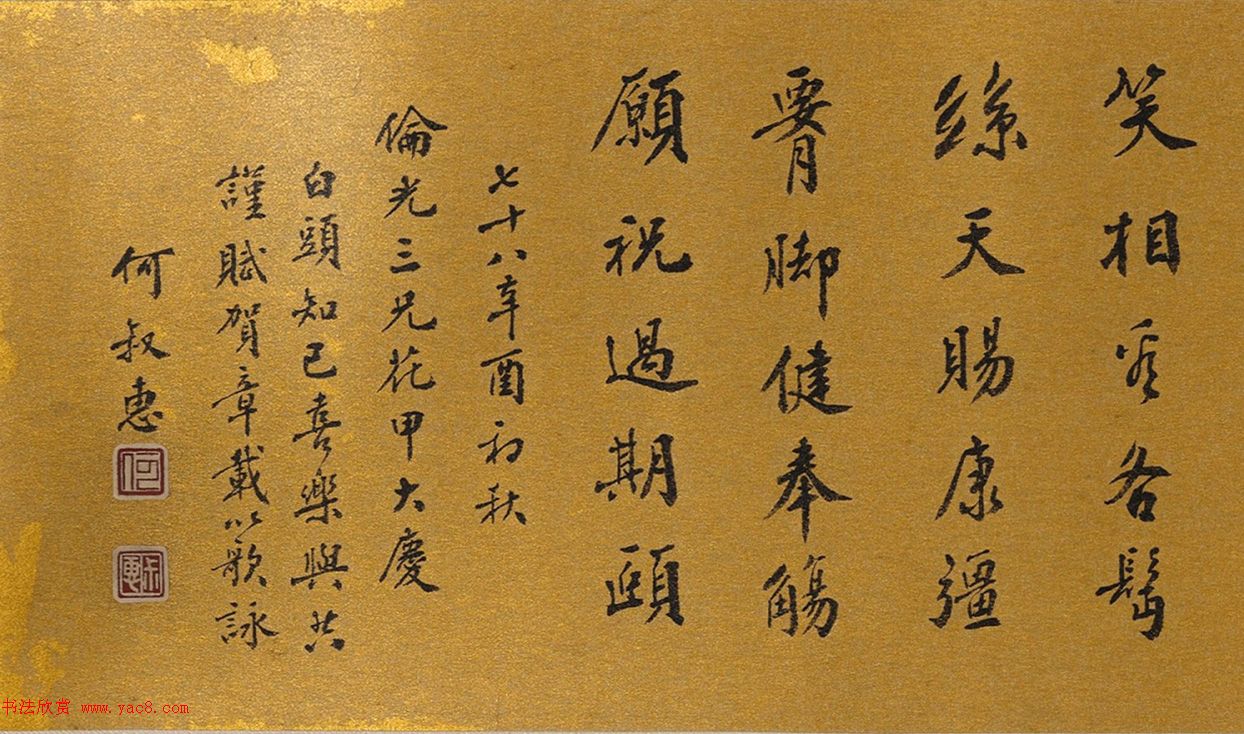 笑相看各鬢
絲天賜康疆
腰脚健奉觴
願祝過期頤
七十八辛酉初秋
倫光三兄花甲大慶
白頭知己喜樂與共
謹賦賀章載以歌詠
何叔惠
何
书法欣赏 www.yac8.com